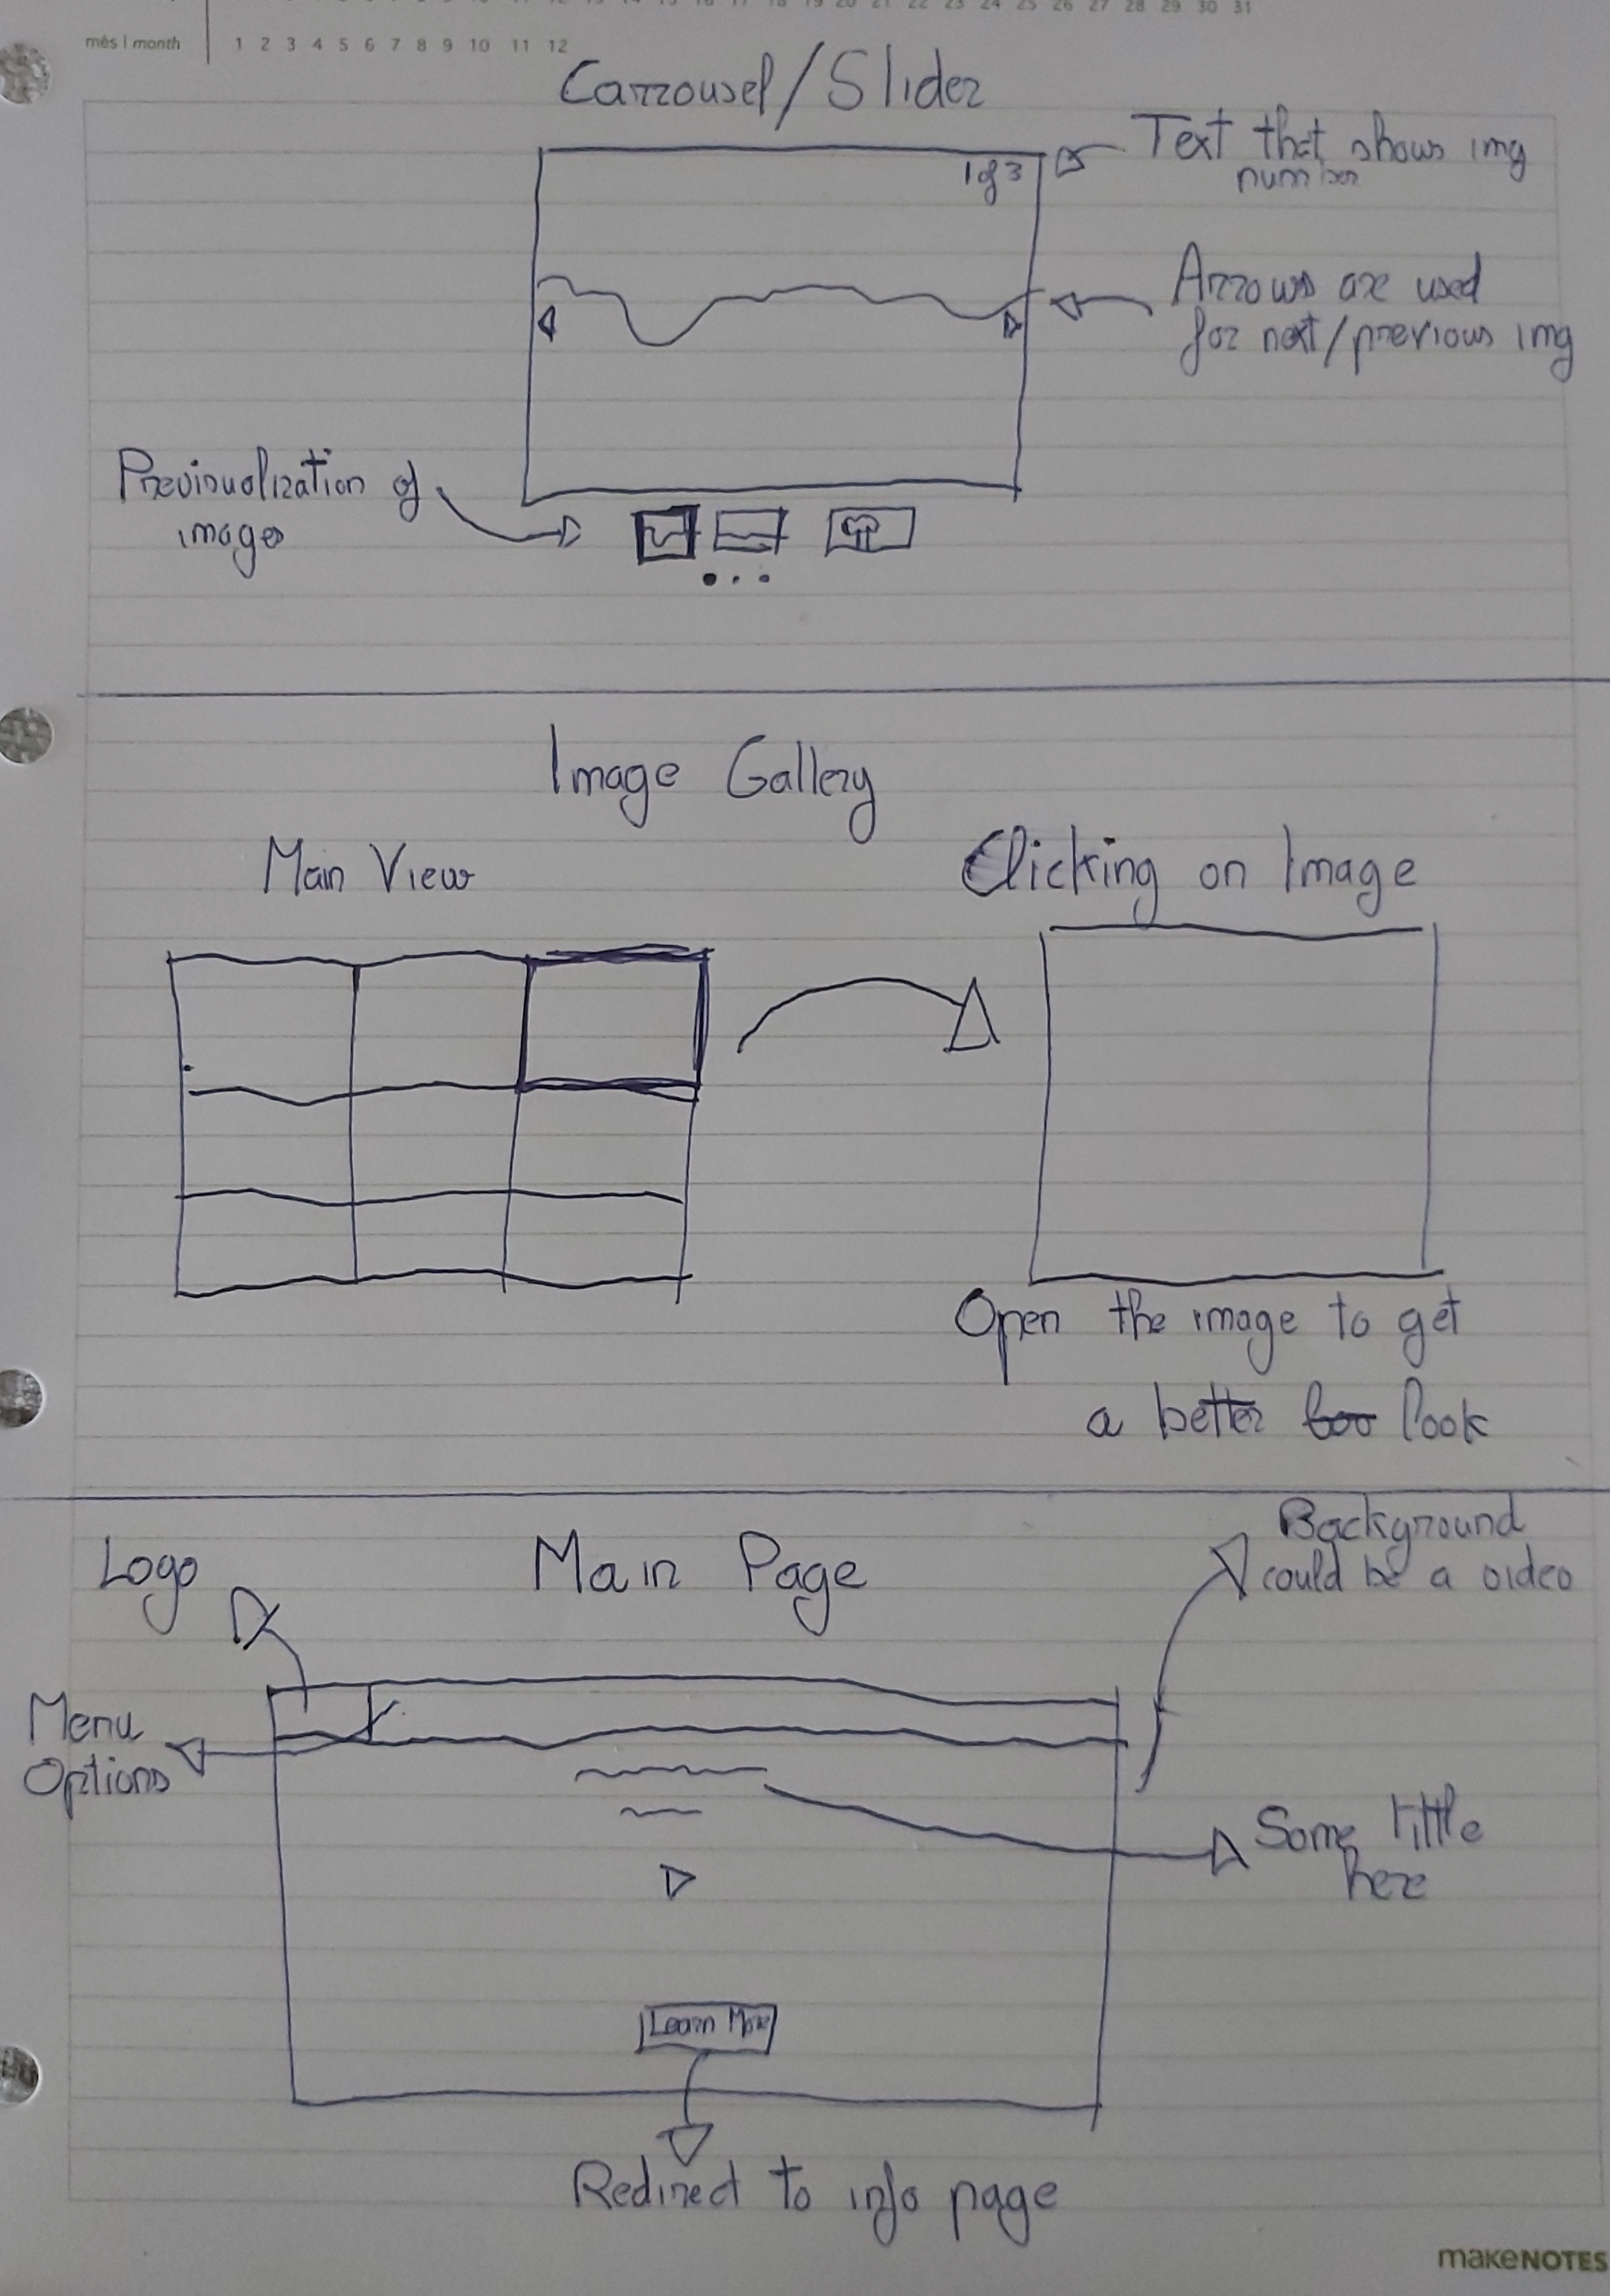 mês | month 1 2 3 4 5 6 7 8 9 10 11 12
Carrousel/Slider
1 of 3
Text that shows img
number
Arrows are used
for next/previous img
Previsualization of
images
Image Gallery
Main View
Clicking on Image
Open the image to get
a better loo look
Logo
Main Page
Background
could be a video
Menu
Options
Some tittle
here
Learn More
Redirect to info page
makeNOTES